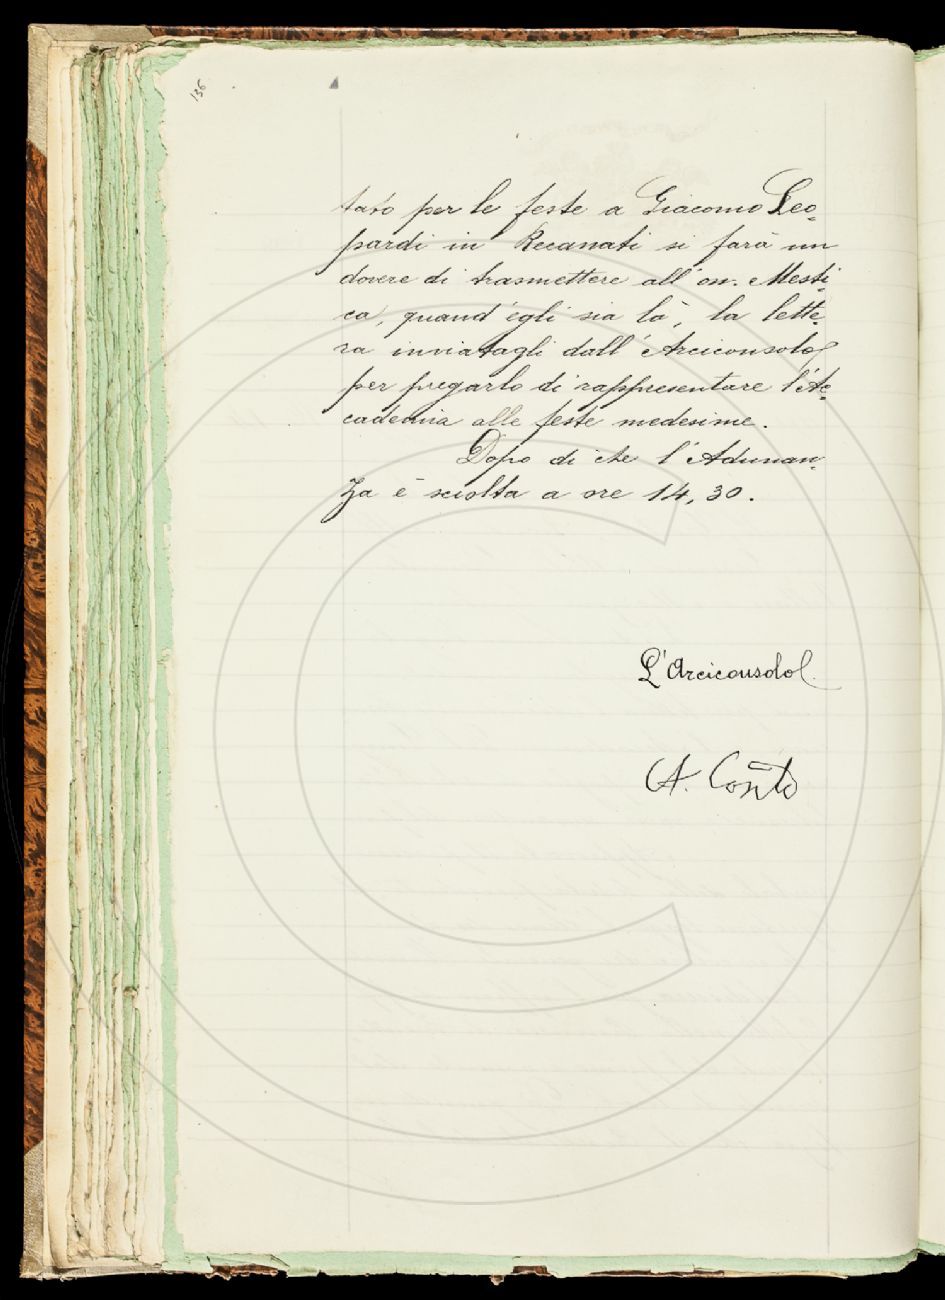 136
tato per le feste a Giacomo Leo-
pardi in Recanati si farà un
dovere di trasmettere all'on. Mesti-
ca, quand'egli sia là, la lette-
ra inviatagli dall'Arciconsolo
per pregarlo di rappresentare l'Ac-
cademia alle feste medesime.
Dopo di che l'Adunan-
za è sciolta a ore 14,30.
L'Arciconsolo
A. Conti